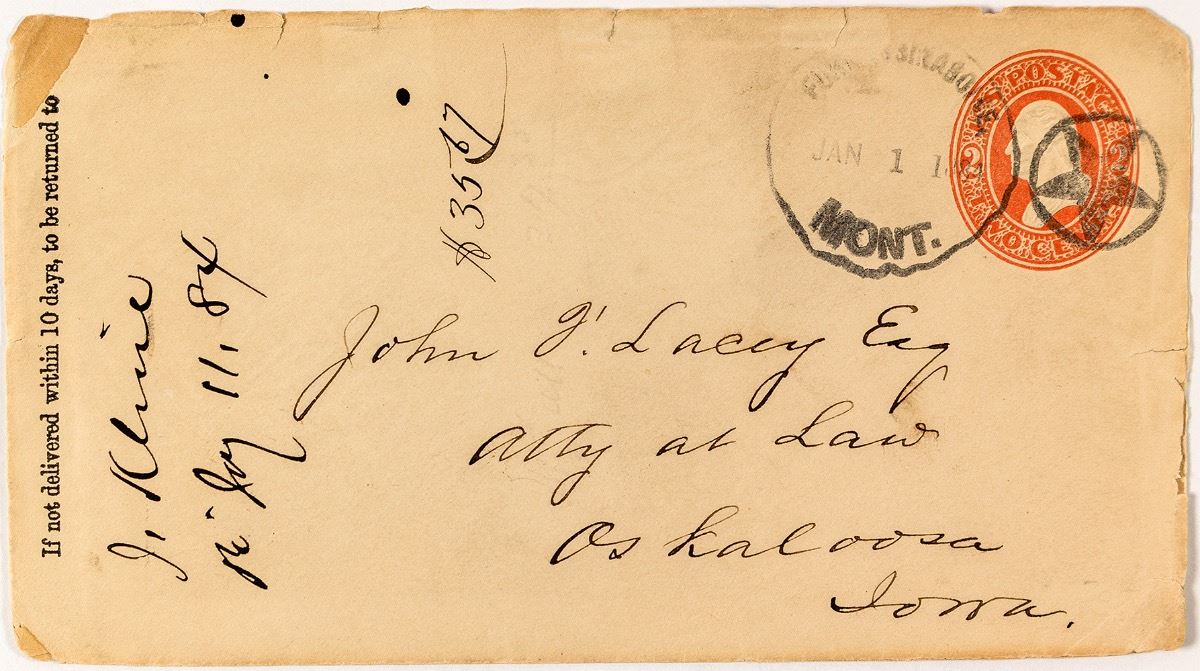 If not delivered within 10 days, to be returned to
11. 84
$35 67
JAN 1
MONT.
U.S. POSTAGE
2 2
TWO CENTS
John F. Lacey Esq
Atty at Law
Oskaloosa
Iowa.